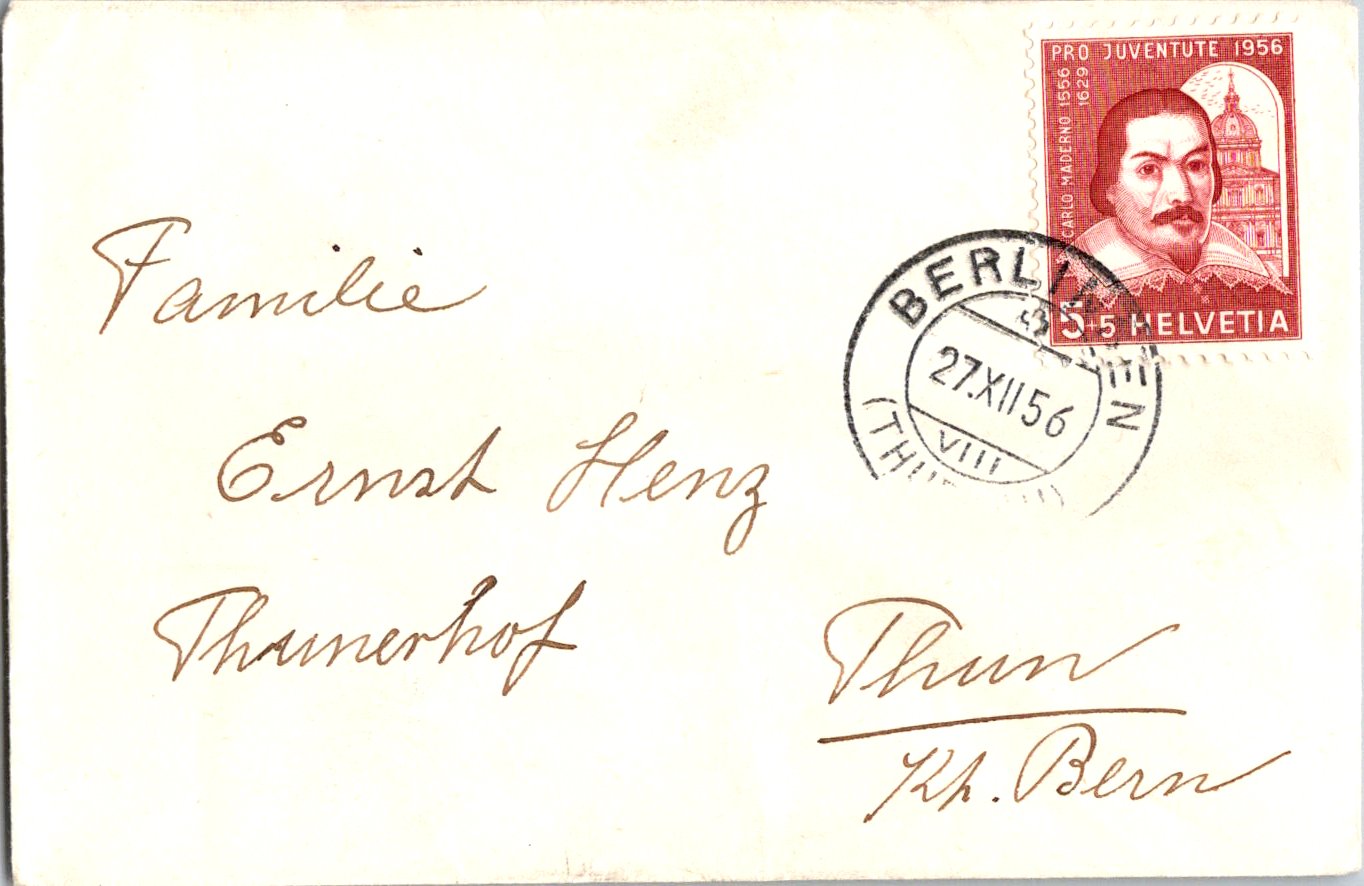 PRO JUVENTUTE 1956
CARLO MADERNO 1556
1629
5+5 HELVETIA
BERLINGEN
27.XII 56
VIII
(THURGAU)
Familie
Ernst Henz
Thunerhof
Thun
Kt. Bern